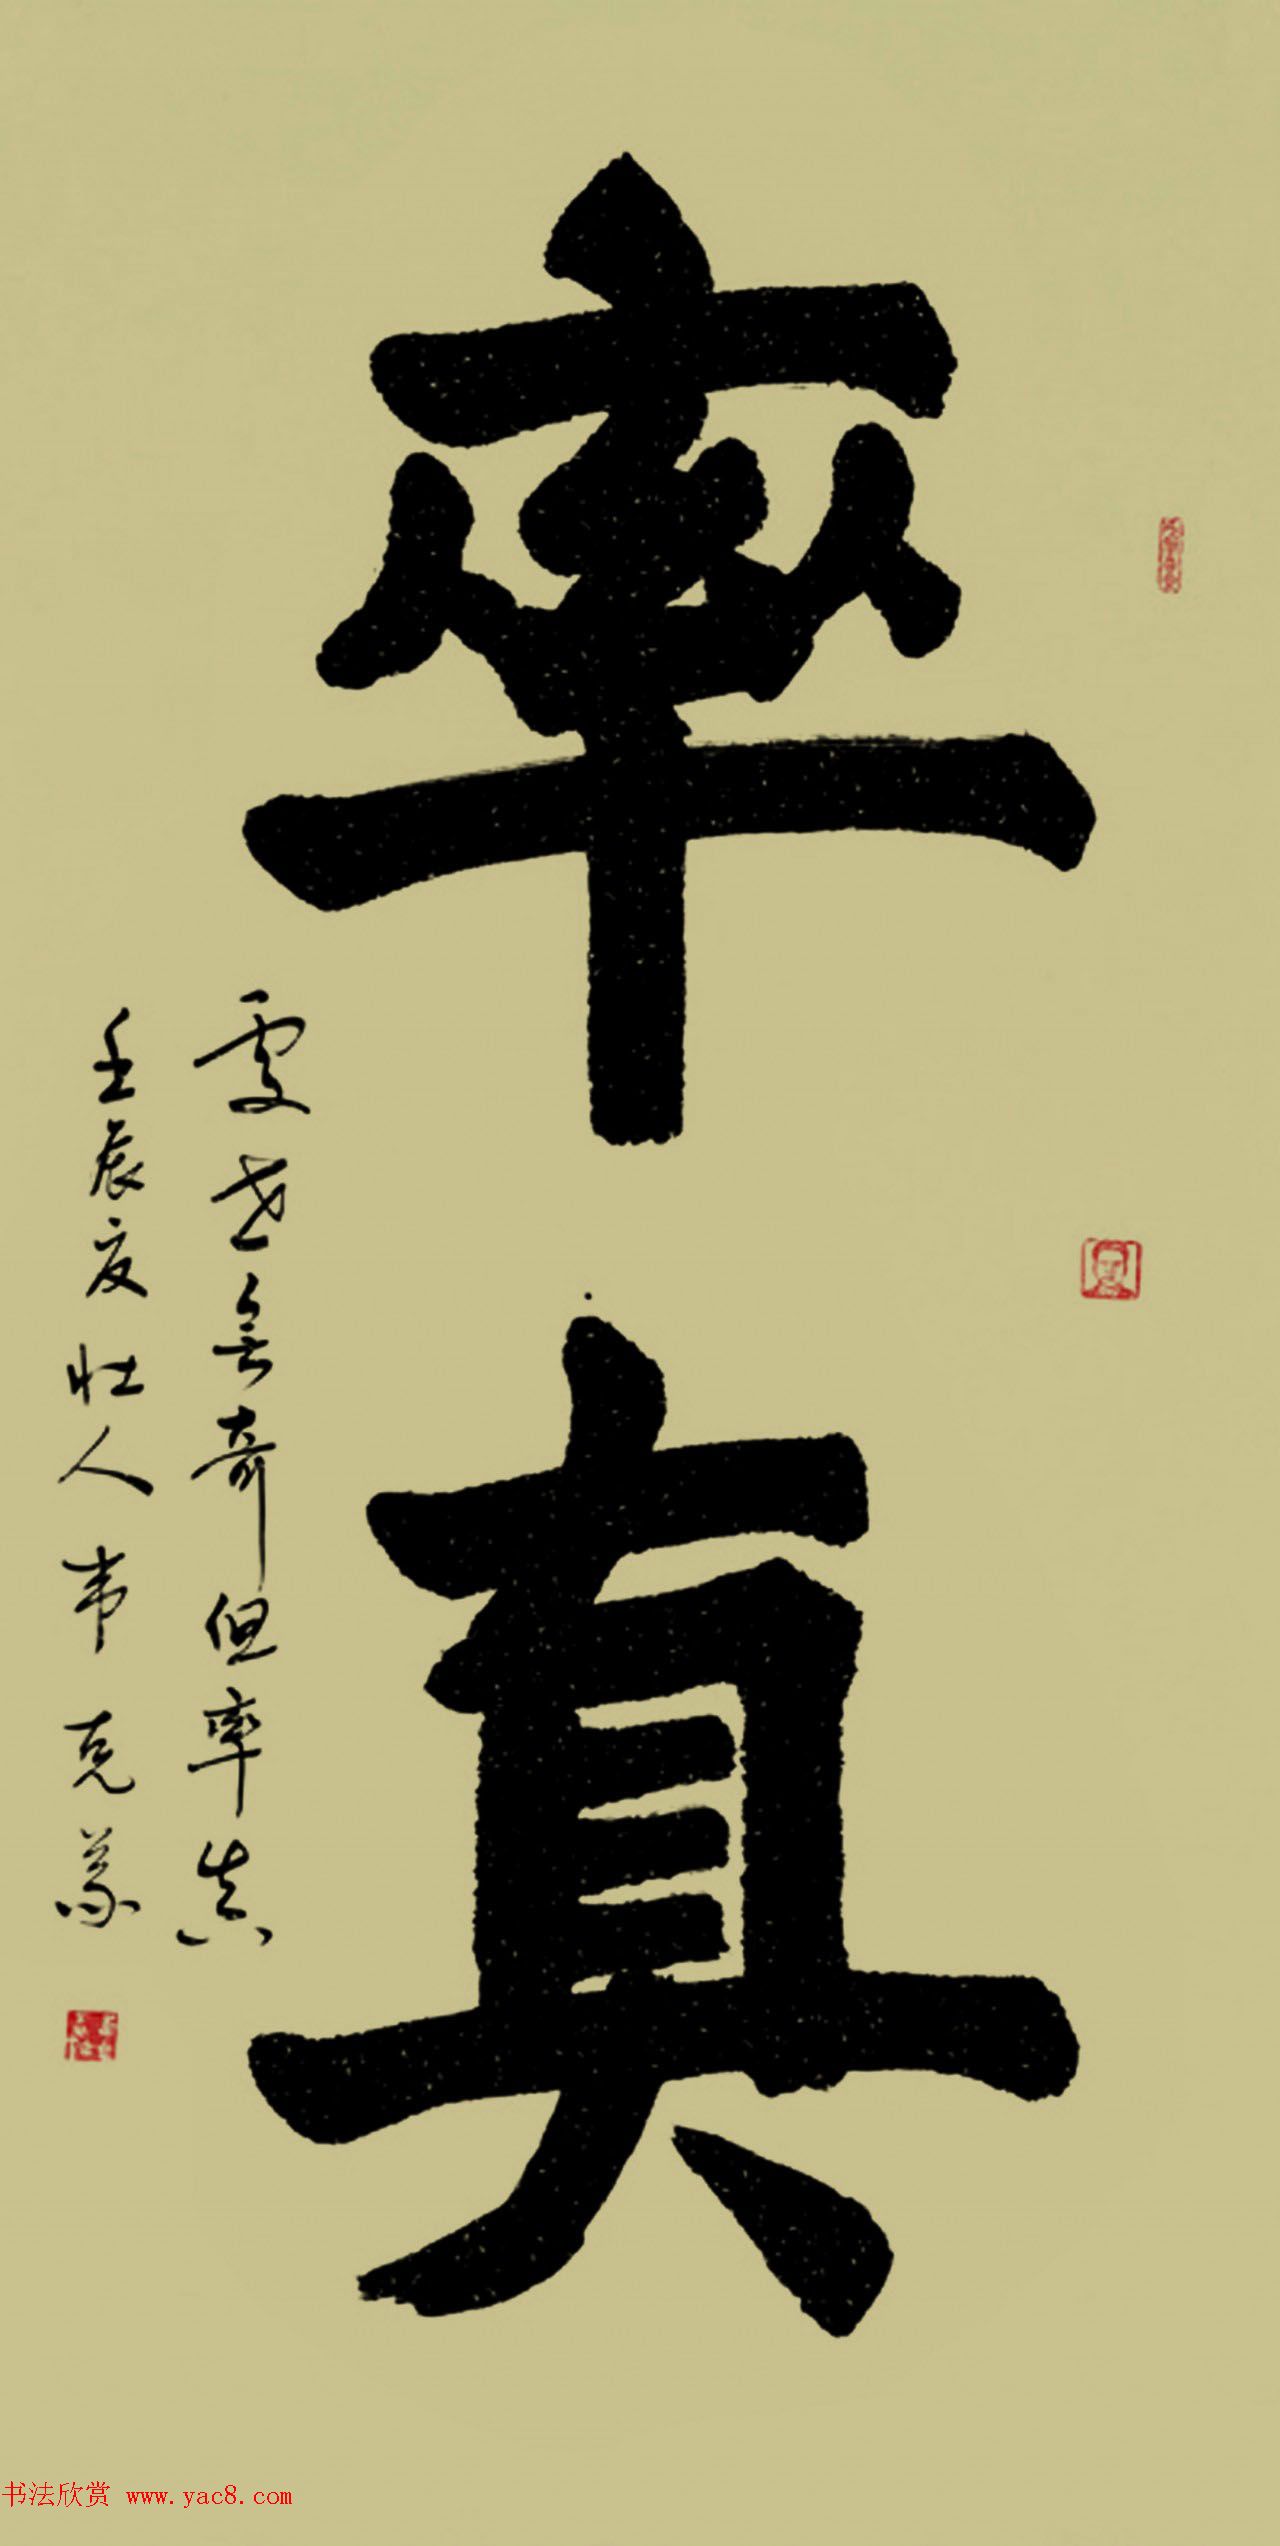 率真
处世无奇但率真
壬辰夏壮人韦克义
书法欣赏 www.yac8.com